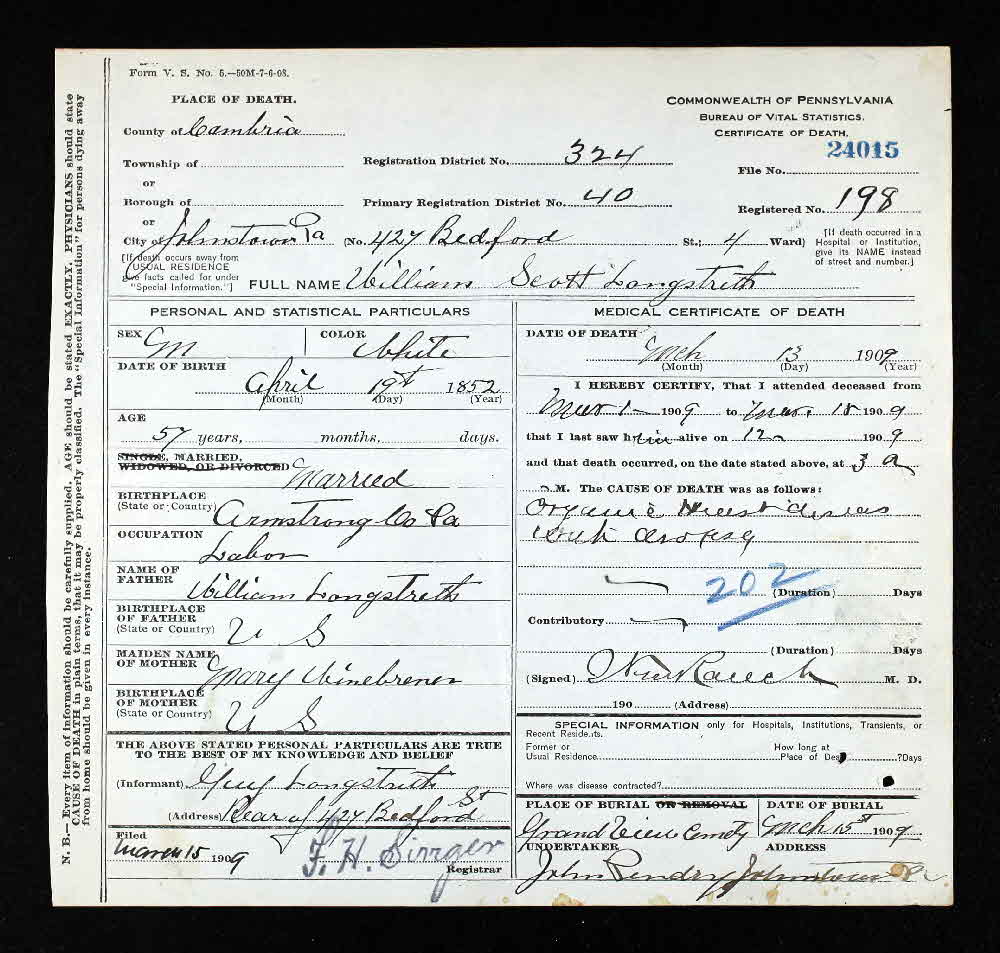 Form V. S. No. 5.—50M-7-6-08.
PLACE OF DEATH.
County of Cambria
Township of
or
Borough of
or
City of Johnstown Pa (No. 427 Bedford St.; 4 Ward)
[If death occurs away from
USUAL RESIDENCE
give facts called for under
"Special Information."]
COMMONWEALTH OF PENNSYLVANIA
BUREAU OF VITAL STATISTICS.
CERTIFICATE OF DEATH.
Registration District No. 324
File No. 24015
Primary Registration District No. 40
Registered No. 198
[If death occurred in a
Hospital or Institution,
give its NAME instead
of street and number.]
FULL NAME William Scott Longstreth
PERSONAL AND STATISTICAL PARTICULARS
SEX M
COLOR White
DATE OF BIRTH
April 19th 1852
(Month) (Day) (Year)
AGE
57 years, months, days.
SINGLE, MARRIED,
WIDOWED, OR DIVORCED Married
BIRTHPLACE
(State or Country) Armstrong Co Pa
OCCUPATION
Labor
NAME OF
FATHER William Longstreth
BIRTHPLACE
OF FATHER
(State or Country) U S
MAIDEN NAME
OF MOTHER Mary Winebrener
BIRTHPLACE
OF MOTHER
(State or Country) U S
THE ABOVE STATED PERSONAL PARTICULARS ARE TRUE
TO THE BEST OF MY KNOWLEDGE AND BELIEF
(Informant) Guy Longstreth
(Address) Rear of 427 Bedford St
Filed
March 15 1909 Registrar
MEDICAL CERTIFICATE OF DEATH
DATE OF DEATH
Mch 13 1909
(Month) (Day) (Year)
I HEREBY CERTIFY, That I attended deceased from
Mar 1 1909 to Mar. 1909
that I last saw him alive on 12 1909
and that death occurred, on the date stated above, at 3 a
M. The CAUSE OF DEATH was as follows:
Organic Heart diseas
with dropsy
202
(Duration) Days
Contributory
(Duration) Days
(Signed) Rauch M. D.
190 (Address)
SPECIAL INFORMATION only for Hospitals, Institutions, Transients, or
Recent Residents.
Former or
Usual Residence
How long at
Place of Death ?Days
Where was disease contracted?
PLACE OF BURIAL OR REMOVAL
Grand View Cemety
DATE OF BURIAL
Mch 15st 1909
UNDERTAKER
John Pendry
ADDRESS
Johnstown Pa
N. B.—Every item of information should be carefully supplied. AGE should be stated EXACTLY. PHYSICIANS should state
CAUSE OF DEATH in plain terms, that it may be properly classified. The "Special Information" for persons dying away
from home should be given in every instance.